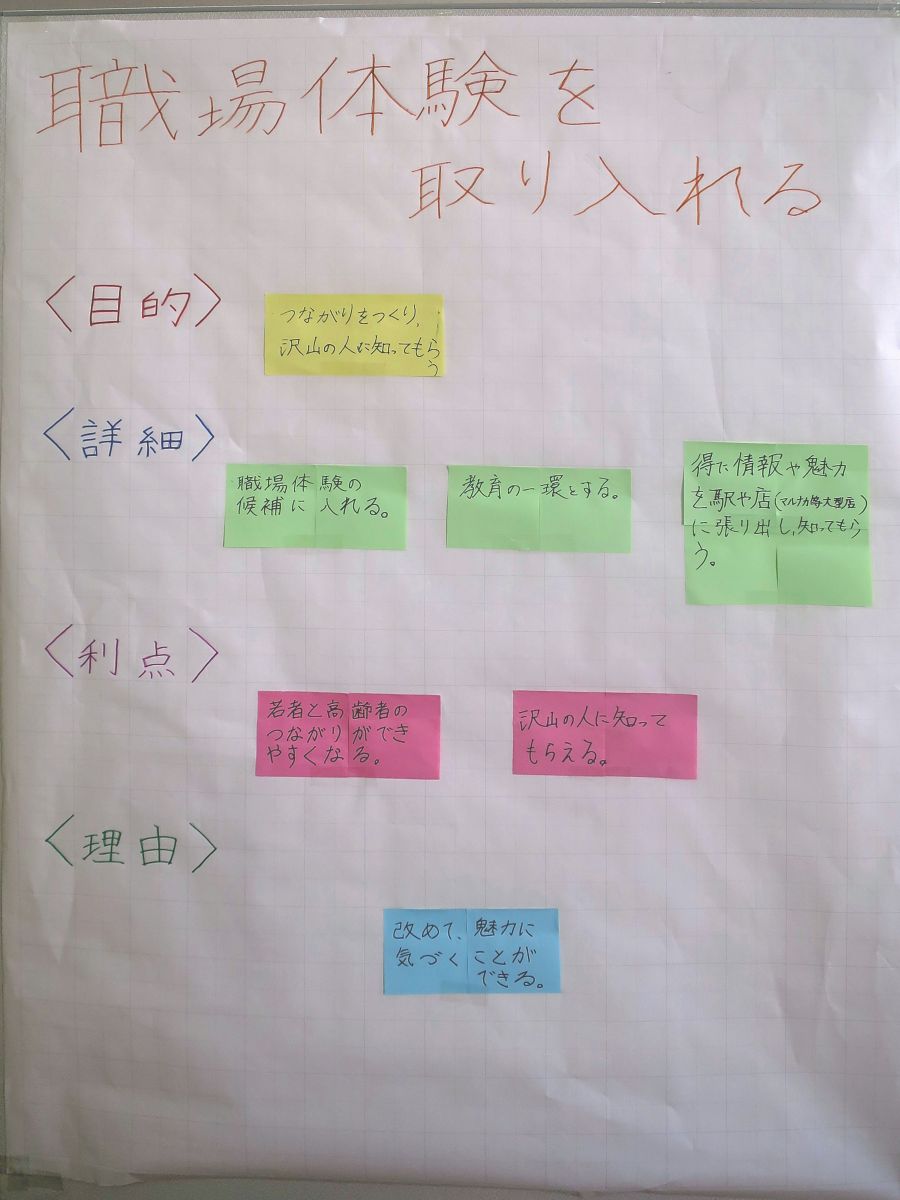 職場体験を
取り入れる
〈目的〉
つながりをつくり、
沢山の人に知ってもら
う
〈詳細〉
職場体験の
候補に入れる。
教育の一環とする。
得た情報や魅力
を駅や店(マルナカ等大型店)
に張り出し、知ってもら
う。
〈利点〉
若者と高齢者の
つながりができ
やすくなる。
沢山の人に知って
もらえる。
〈理由〉
改めて、魅力に
気づくことが
できる。